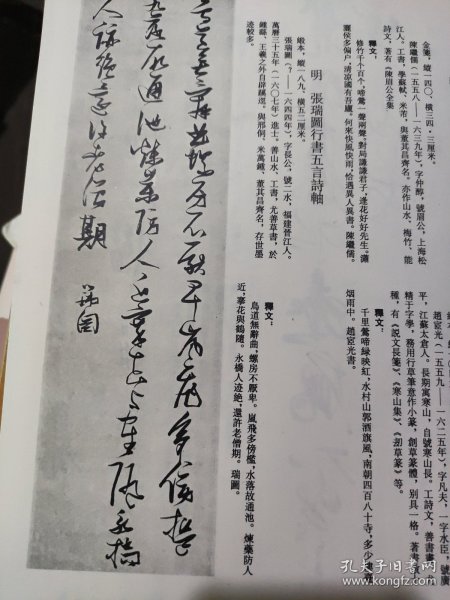 金箋，縱一四〇、橫三四·二厘米。
陳繼儒（一五五八—一六三九年），字仲醇，號眉公，上海松
江人。工書，學蘇軾、米芾，與董其昌齊名。亦作山水、梅竹，能
詩文，著有《陳眉公全集
釋文：
修竹千个百个，啼鶯一聲兩聲。對局謙謙君子，逢花好好先生。
侯多個戶，清凉國有吾廬。何來快風快雨，恰遇異人異書。陳繼儒。
明 張瑞圖行書五言詩軸
緞本，縱一八九、橫五二厘米。
張瑞圖（？—一六四四年），字長公，號二水，福建晉江人。
萬曆三十五年（一六〇七年）進士。善山水，工書，尤善草書，於
鍾繇、王羲之外自闢蹊徑，與邢侗、米萬鍾、董其昌齊名，存世墨
迹較多。
趙宧光（一五五九—一六二五年），字凡夫，一字水臣，號廣
平，江蘇太倉人。長期寓寒山，自號寒山長。工詩文，善書畫
精于字學，務用行草筆意作小篆，創草篆體，別具一格。著書
種，有《説文長箋》、《寒山集》、《刼草篆》等。
釋文：
千里鶯啼緑映紅，水村山郭酒旗風，南朝四百八十寺，多少
烟雨中。趙宧光書。
釋文：
鳥道無辭曲，蜂房不厭卑。嵐飛多傍檻，水落故通池。煉藥防人
近，寧花與鶴隨。永橋人迹絶，還許老僧期。瑞圖。
孔夫子旧书网
www.kongfz.com